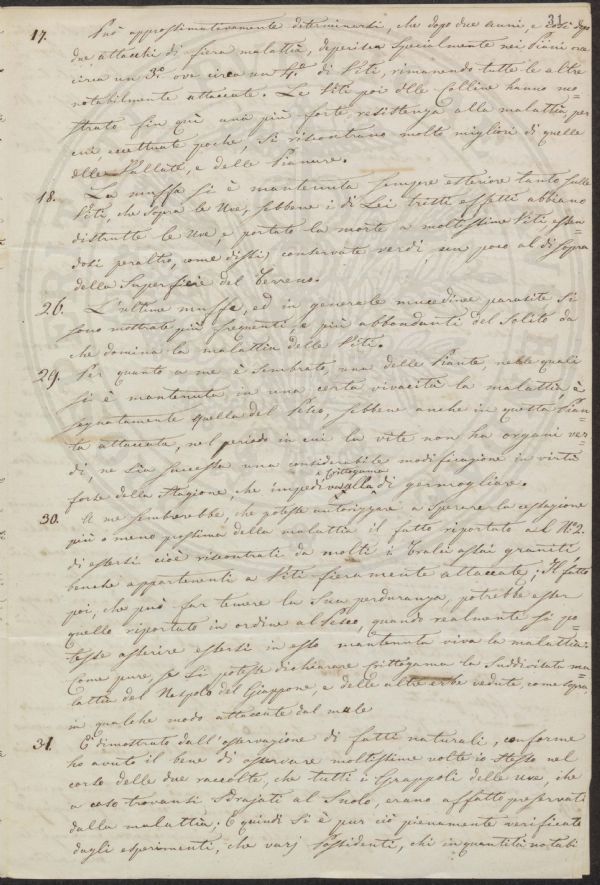 31
17. Può approssimativamente determinarsi, che dopo due anni, e così dopo
due attacchi di fiera malattia, deperisca specialmente nei Piani ora
circa un 3.º ove circa un 4.º di Viti, rimanendo tutte le altre
notabilmente attaccate. Le Viti poi delle Colline hanno mo=
strato fin quì una più forte resistenza alla malattia, per
cui, eccettuate poche, si riscontrano molto migliori di quelle
delle Vallate, e delle Pianure.
18. La muffa si è mantenuta sempre esteriore tanto sulle
Viti, che sopra le Uve, sebbene i di Lei tristi effetti abbiano
distrutte le Uve, e portato la morte a moltissime Viti essen=
dosi peraltro, come dissi, conservate verdi, un poco al di sopra
della Superficie del Terreno.
26. L'ultime muffe, ed in generale mucedinee parasite si
sono mostrate più frequenti, e più abbondanti del Solito da
che domina la malattia delle Viti.
29. Per quanto a me è sembrato, una delle Piante, nelle quali
si è mantenuta in una certa vivacità la malattia, è
segnatamente quella del Pesco, sebbene anche in questa Pian=
ta attaccata, nel periodo in cui la vite non ha organi ver=
di, ne sia successa una considerabile modificazione in virtù
forse della Stagione, che impediva alla Crittogama di germogliare.
30. A me sembrerebbe, che potesse autorizzare a sperare la cessazione
più o meno prossima della malattia il fatto riportato al N.º 2.
di essersi cioè riscontrati da molti i Tralci assai graniti
benche appartenenti a Viti fieramente attaccate; Il fatto
poi, che può far temere la Sua perduranza, potrebbe esser
quello riportato in ordine al Pesco, quando realmente si po=
tesse asserire essersi in esso mantenuta viva la malattia:
Come pure, se si potesse dichiarare Crittogama la Suddivisata ma=
lattia del Nespolo del Giappone, e delle altre erbe vedute, come sopra,
in qualche modo attaccate dal male
31. È dimostrato dall'osservazione di fatti naturali, conforme
ho avuto il bene di osservare moltissime volte io stesso nel
corso delle due raccolte, che tutti i Grappoli delle uve, che
a caso trovansi Sdrajati al Suolo, erano affatto preservati
dalla malattia: E quindi si è pur ciò pienamente verificato
dagli esperimenti, che varj Possidenti, chi in quantità notabi